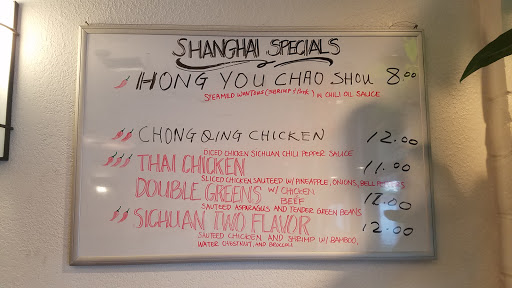 SHANGHAI SPECIALS
HONG YOU CHAO SHOU 8.00
STEAMED WONTONS (SHRIMP/PORK) IN CHILI OIL SAUCE
CHONG QING CHICKEN 12.00
DICED CHICKEN SICHUAN CHILI PEPPER SAUCE
THAI CHICKEN 11.00
SLICED CHICKEN SAUTEED W/ PINEAPPLE, ONIONS, BELL
DOUBLE GREENS W/ CHICKEN
BEEF 12.00
SAUTEED ASPARAGUS AND TENDER GREEN BEANS
SICHUAN TWO FLAVOR 12.00
SAUTEED CHICKEN AND SHRIMP W/ BAMBOO,
WATER CHESTNUT, AND BROCCOLI